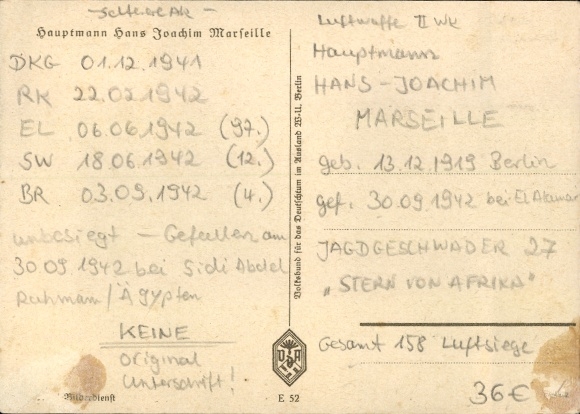 - seltene AK -
Hauptmann Hans Joachim Marseille
DKG 01.12.1941
RK 22.02.1942
EL 06.06.1942 (97.)
SW 18.06.1942 (12.)
BR 03.09.1942 (4.)
unbesiegt - Gefallen am
30.09.1942 bei Sidi Abdel
Rahmam / Ägypten
KEINE
Original
Unterschrift!
Bilderdienst
Volksbund für das Deutschtum im Ausland W-U. Berlin
VDA
E 52
Luftwaffe II WK
Hauptmann
HANS-JOACHIM
MARSEILLE
geb. 13.12.1919 Berlin
gef. 30.09.1942 bei El Alamain
JAGDGESCHWADER 27
„STERN VON AFRIKA"
Gesamt 158 Luftsiege
36€